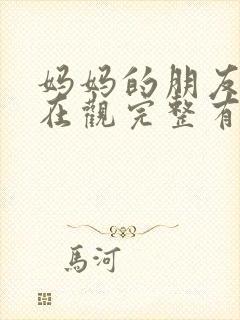 妈妈的朋友
在觀完整有
馬河